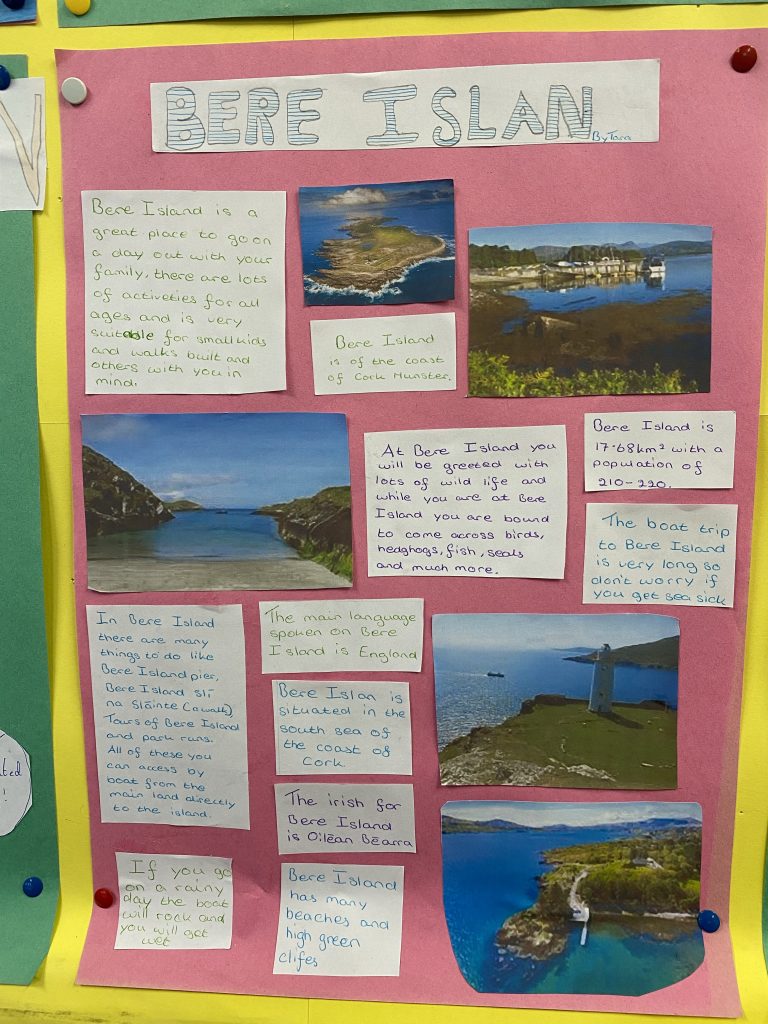 BERE ISLAN
By Tara
Bere Island is a
great place to go on
a day out with your
family, there are lots
of activeties for all
ages and is very
suitable for small kids
and walks built and
others with you in
mind.
Bere Island
is of the coast
of Cork Munster.
At Bere Island you
will be greeted with
lots of wild life and
while you are at Bere
Island you are bound
to come across birds,
hedghogs, fish, seals
and much more.
Bere Island is
17.68km² with a
population of
210-220.
The boat trip
to Bere Island
is very long so
don't worry if
you get sea sick
In Bere Island
there are many
things to do like
Bere Island pier,
Bere Island Slí
na Sláinte (a walk),
Tours of Bere Island
and park runs.
All of these you
can access by
boat from the
main land directly
to the island.
The main language
spoken on Bere
Island is England
Bere Islan is
situated in the
south sea of
the coast of
Cork
The irish for
Bere Island
is Oiléan Béarra
If you go
on a rainy
day the boat
will rock and
you will get
wet
Bere Island
has many
beaches and
high green
clifes
!